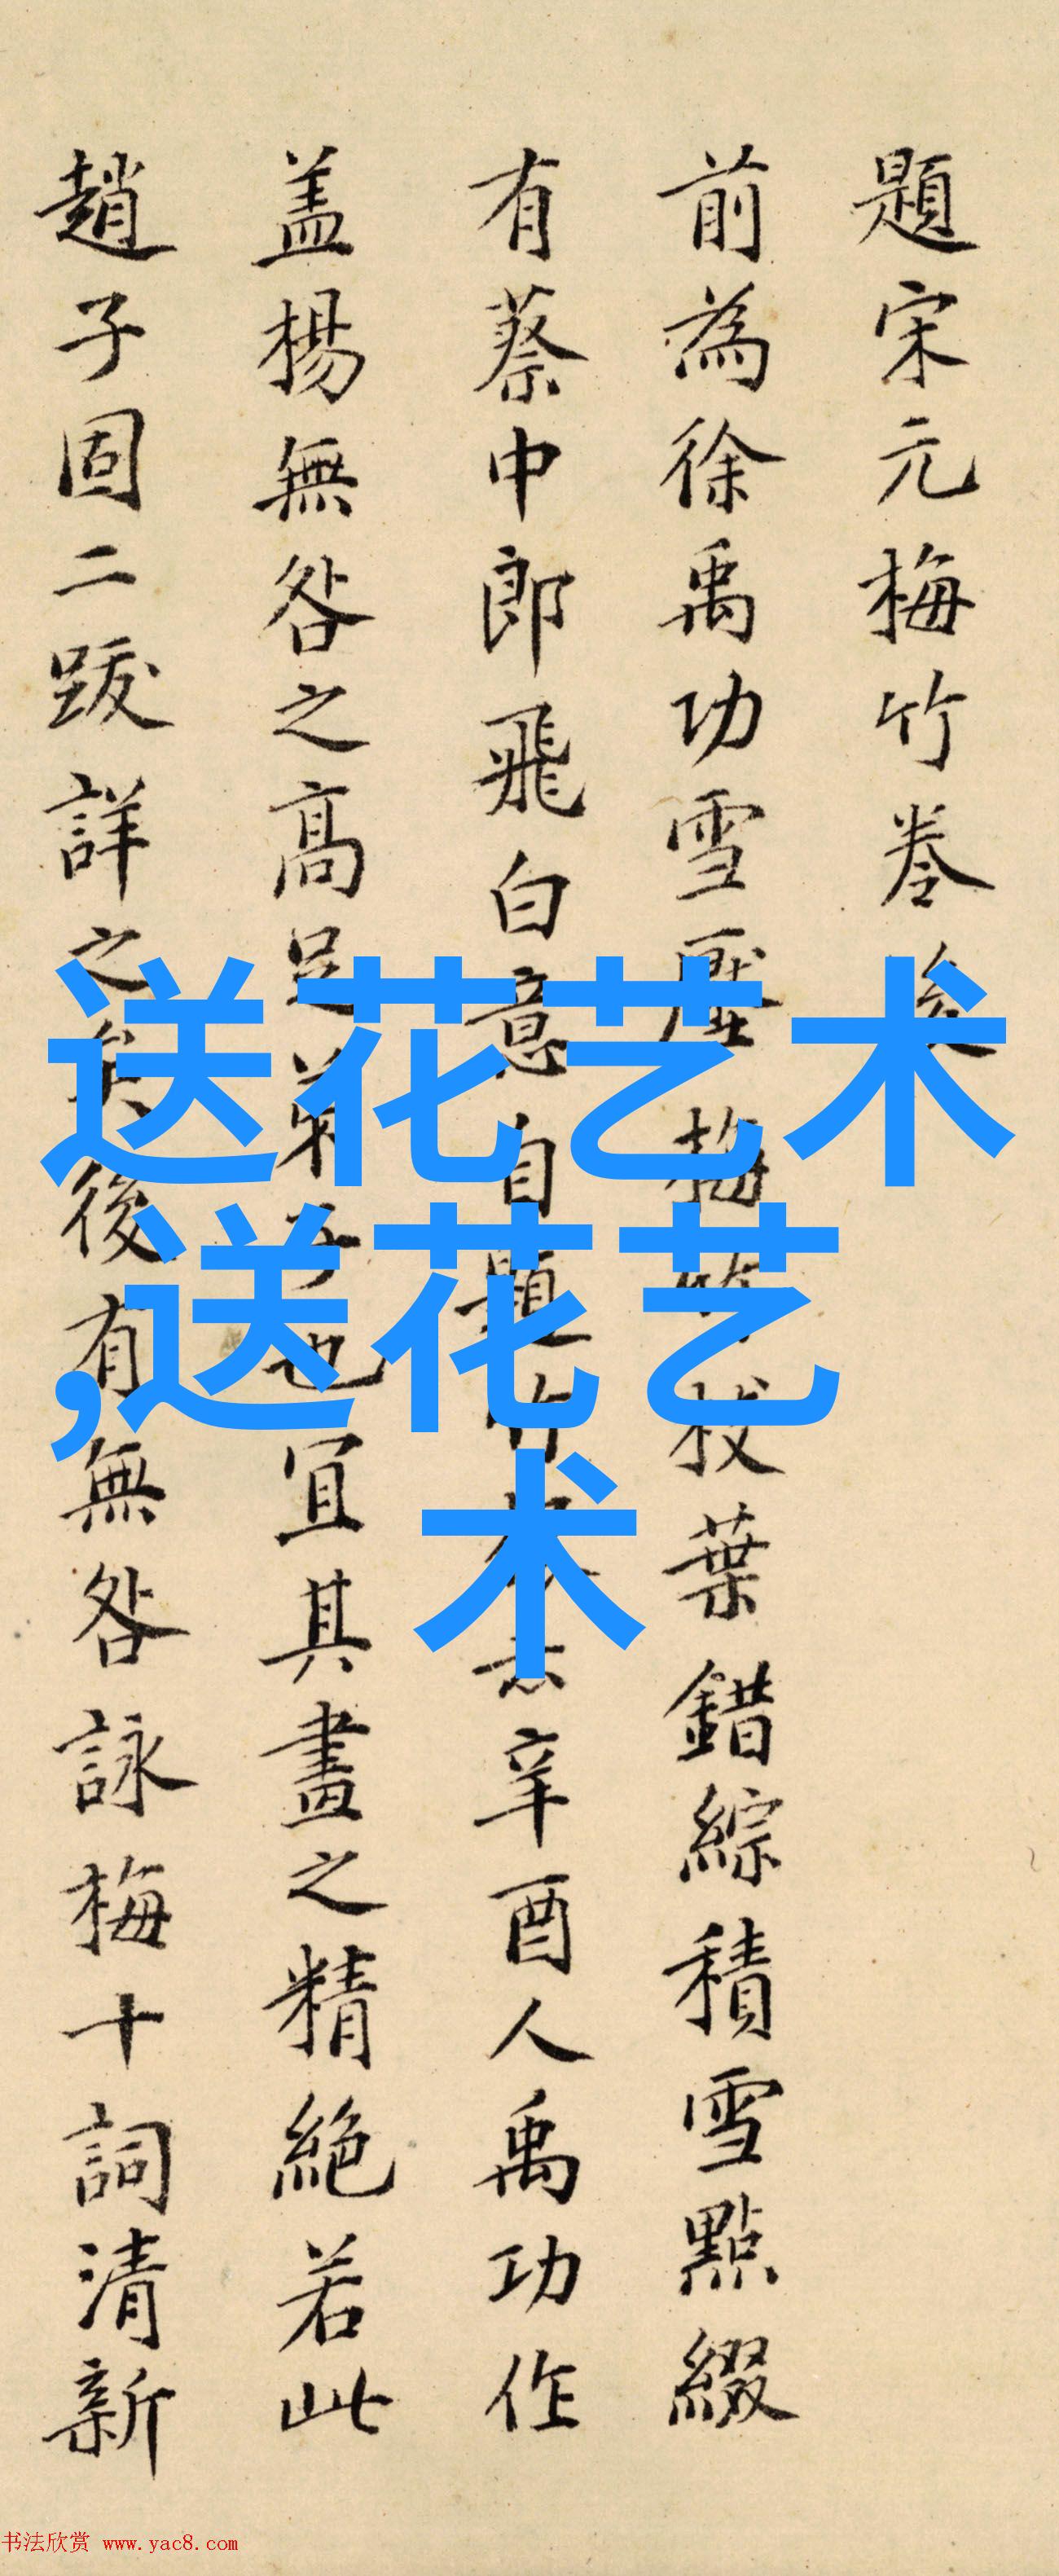 題宋元梅竹卷後
前為徐禹功雪壓梅竹枝葉錯綜積雪點綴
有蔡中郎飛白意自題竹辛酉人禹功作
盖楊無咎之高足弟子也宜其畫之精絕若此
趙子固二跋詳之矣後有無咎詠梅十詞清新
送花艺术
,送花艺
术
书法欣赏 www.yac8.com